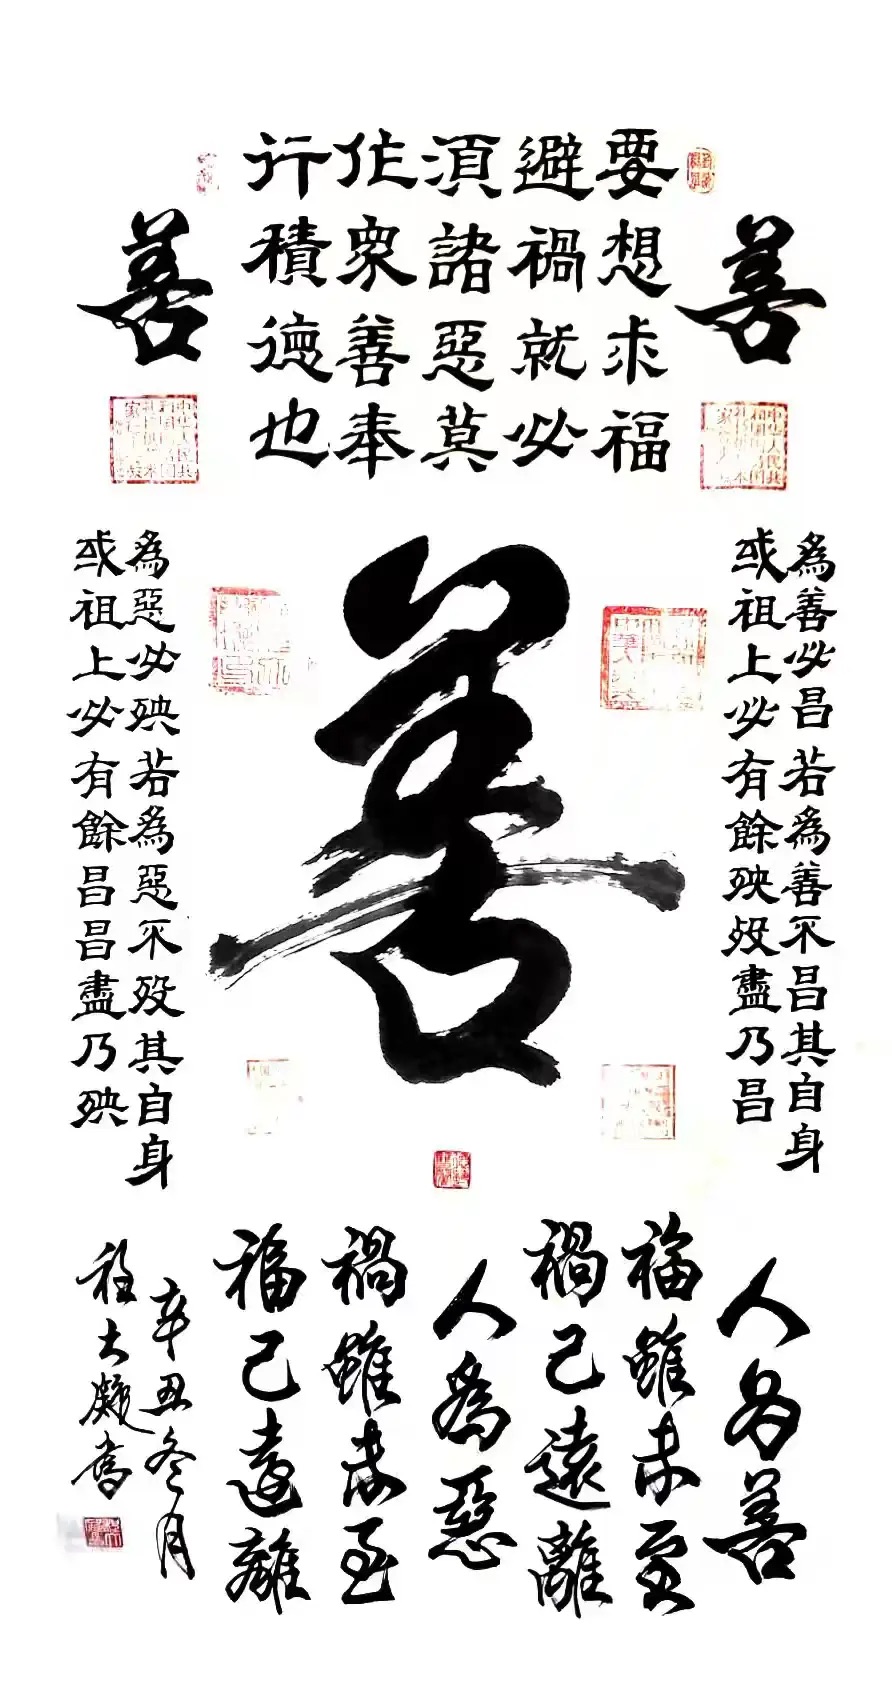 善
要想求福
避禍就必
湏諸惡莫
作衆善奉
行積德也
善
為善必昌若為善不昌其自身
或祖上必有餘殃殁盡乃昌
善
為惡必殃若為惡不殁其自身
或祖上必有餘昌昌盡乃殃
人为善
福雖未至
禍已遠離
人為惡
禍雖未至
福已遠離
辛丑冬月
程大書